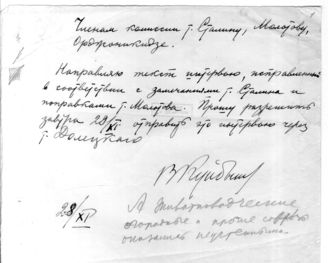 Членам комиссии т. Сталину, Молотову,
Орджоникидзе.
Направляю текст интервью, исправленный
в соответствии с замечаниями т. Сталина и
поправками т. Молотова. Прошу разрешить
завтра 29/XI отправить это интервью через
т. Долецкого
В Куйбыш
28/XI
А животноводческие
огородные и прочие совхозы
оказались